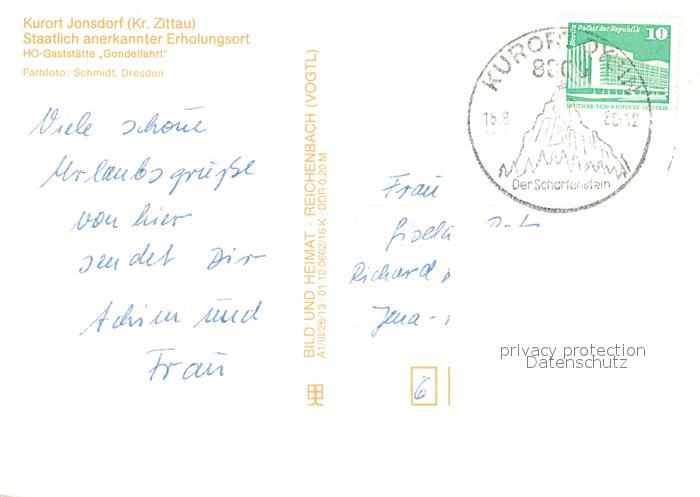 Kurort Jonsdorf (Kr. Zittau)
Staatlich anerkannter Erholungsort
HO-Gaststätte „Gondelfahrt"
Farbfoto: Schmidt, Dresden
Viele schöne
Urlaubsgrüße
von hier
sendet Dir
Achim und
Frau
BILD UND HEIMAT · REICHENBACH (VOGTL)
A1/III/26/13 · 01 12 0662/16 K · DDR 0,20 M
Berlin, Palast der Republik
10
DEUTSCHE DEMOKRATISCHE REPUBLIK
KURORT
15.8
-12
Der Scharfenstein
Frau
Gisela
Richard
Jena-
6
privacy protection
Datenschutz